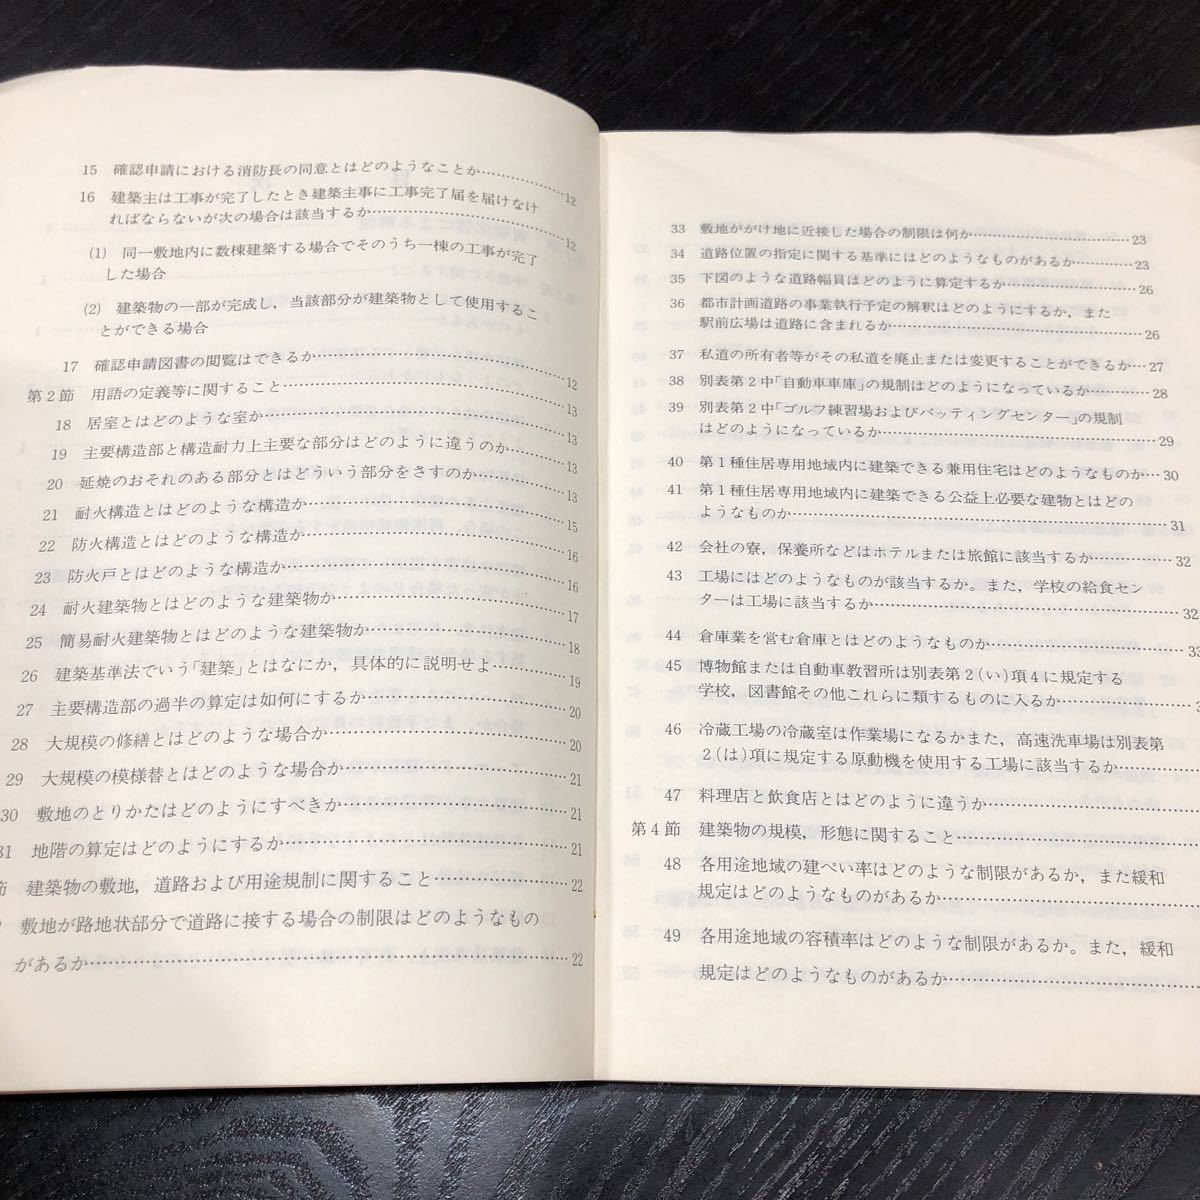 15 確認申請における消防長の同意とはどのようなことか…………………12
16 建築主は工事が完了したとき建築主事に工事完了届を届けなけ
ればならないが次の場合は該当するか…………………………………12
(1) 同一敷地内に数棟建築する場合でそのうち一棟の工事が完了
した場合
(2) 建築物の一部が完成し，当該部分が建築物として使用するこ
とができる場合
17 確認申請図書の閲覧はできるか…………………………………12
第2節 用語の定義等に関すること…………………………………13
18 居室とはどのような室か…………………………………13
19 主要構造部と構造耐力上主要な部分はどのように違うのか…………13
20 延焼のおそれのある部分とはどういう部分をさすのか……………13
21 耐火構造とはどのような構造か…………………………………15
22 防火構造とはどのような構造か…………………………………16
23 防火戸とはどのような構造か…………………………………16
24 耐火建築物とはどのような建築物か……………………………17
25 簡易耐火建築物とはどのような建築物か…………………………18
26 建築基準法でいう「建築」とはなにか，具体的に説明せよ…………19
27 主要構造部の過半の算定は如何にするか…………………………20
28 大規模の修繕とはどのような場合か……………………………20
29 大規模の模様替とはどのような場合か……………………………21
30 敷地のとりかたはどのようにすべきか……………………………21
31 地階の算定はどのようにするか…………………………………21
節 建築物の敷地，道路および用途規制に関すること………………22
敷地が路地状部分で道路に接する場合の制限はどのようなもの
があるか…………………………………………………………22
33 敷地ががけ地に近接した場合の制限は何か………………………23
34 道路位置の指定に関する基準にはどのようなものがあるか…………23
35 下図のような道路幅員はどのように算定するか……………………26
36 都市計画道路の事業執行予定の解釈はどのようにするか，また
駅前広場は道路に含まれるか…………………………………26
37 私道の所有者等がその私道を廃止または変更することができるか…27
38 別表第2中「自動車車庫」の規制はどのようになっているか………28
39 別表第2中「ゴルフ練習場およびバッティングセンター」の規制
はどのようになっているか…………………………………29
40 第1種住居専用地域内に建築できる兼用住宅はどのようなものか…30
41 第1種住居専用地域内に建築できる公益上必要な建物とはどの
ようなものか…………………………………………………31
42 会社の寮，保養所などはホテルまたは旅館に該当するか……………32
43 工場にはどのようなものが該当するか。また，学校の給食セン
ターは工場に該当するか…………………………………32
44 倉庫業を営む倉庫とはどのようなものか…………………………33
45 博物館または自動車教習所は別表第2(い)項4に規定する
学校，図書館その他これらに類するものに入るか…………………
46 冷蔵工場の冷蔵室は作業場になるかまた，高速洗車場は別表第
2(は)項に規定する原動機を使用する工場に該当するか…………
47 料理店と飲食店とはどのように違うか……………………………
第4節 建築物の規模，形態に関すること……………………………
48 各用途地域の建ぺい率はどのような制限があるか，また緩和
規定はどのようなものがあるか…………………………………
49 各用途地域の容積率はどのような制限があるか。また，緩和
規定はどのようなものがあるか…………………………………